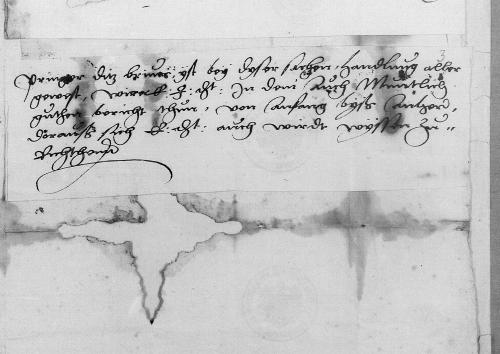 Pringer ditz brieves ist bey dyser sachen handlung alber
gewest, wirtt E. ht. In dem auch Muntlich
guthen bericht thun, von anfang byss Zu end,
dorauss sich E. ht. auch wirdt wyssen zu
Richthen